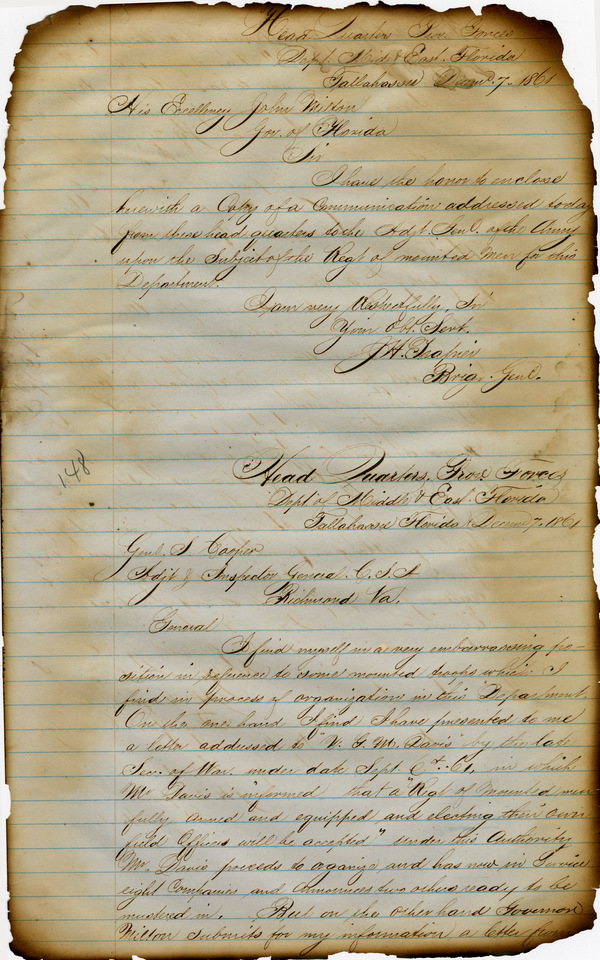 Head Quarters Prov. Forces
Dept. Mid & East. Florida
Tallahassee Decem. 7. 1861
His Excellency John Milton
Gov. of Florida
Sir
I have the honor to enclose
herewith a Copy of a Communication addressed today
from these head quarters to the Adjt. Genl. of the Army
upon the Subject of the Regt of mounted Men for this
Department.
I am very Respectfully, Sir
Your Obt. Servt.
J. H. Trapier
Brig. Genl.
148
Head Quarters, Prov. Forces
Dept. of Middle & East. Florida
Tallahassee Florida Decem 7, 1861
Genl. S Cooper
Adjt & Inspector General. C.S.A
Richmond Va.
General
I find myself in a very embarrassing po-
sition in reference to some mounted troops which I
find in process of organization in this Department
On the one hand I find I have presented to me
a letter addressed to "W. G. M. Davis" by the late
Sec. of War. under date Sept. 61, in which
Mr Davis is "informed that a "Regt of Mounted men
fully armed and equipped and electing their own
field Officers will be accepted" under this Authority
Mr. Davis proceeds to oganize and has now in Service
eight Companies and Announces two others ready to be
mustered in. But on the other hand Governor
Milton Submits for my information a letter from